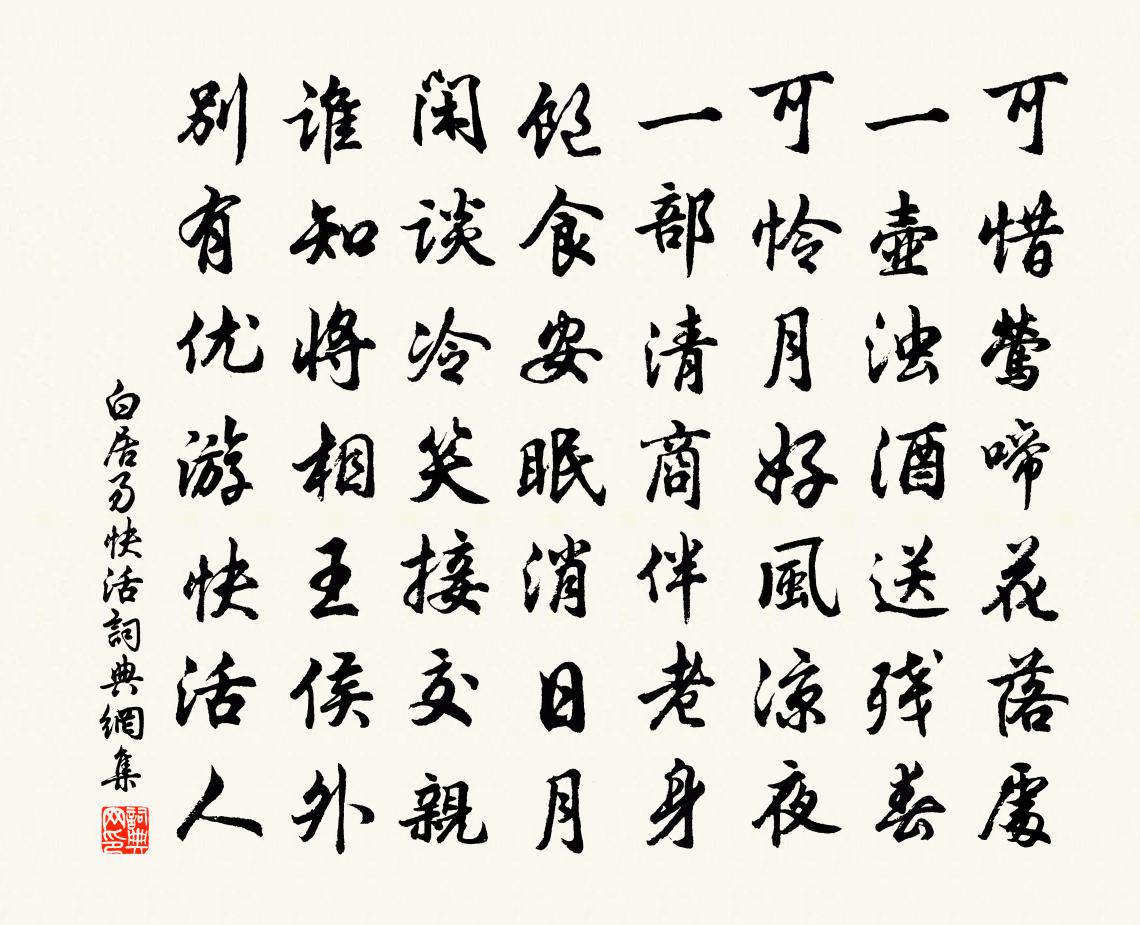 可惜鶯啼花落處
一壺浊酒送残春
可怜月好風涼夜
一部清商伴老身
飽食安眠消日月
閑談冷笑接交親
誰知將相王侯外
別有优游快活人
白居易快活詞典網集
詞典網印